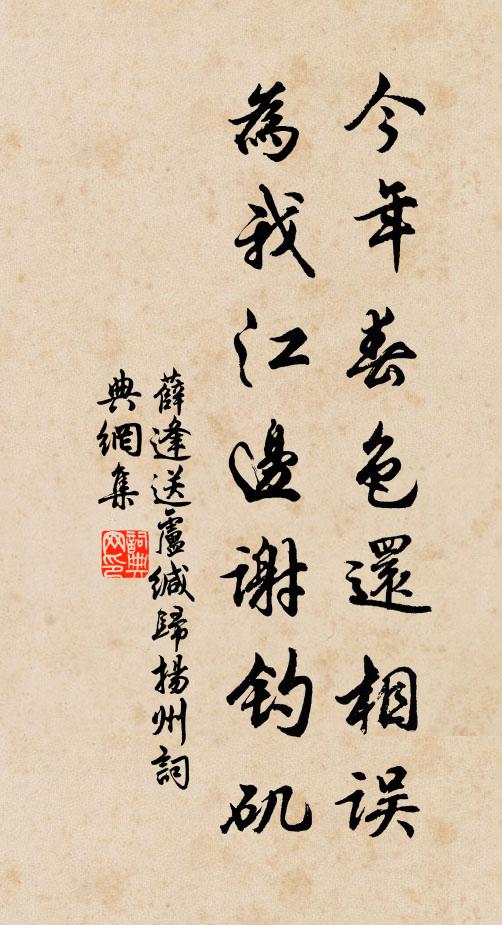 今年春色還相误
為我江邊謝钓矶
薛逢送盧緘歸揚州詞
典網集
詞典
网印